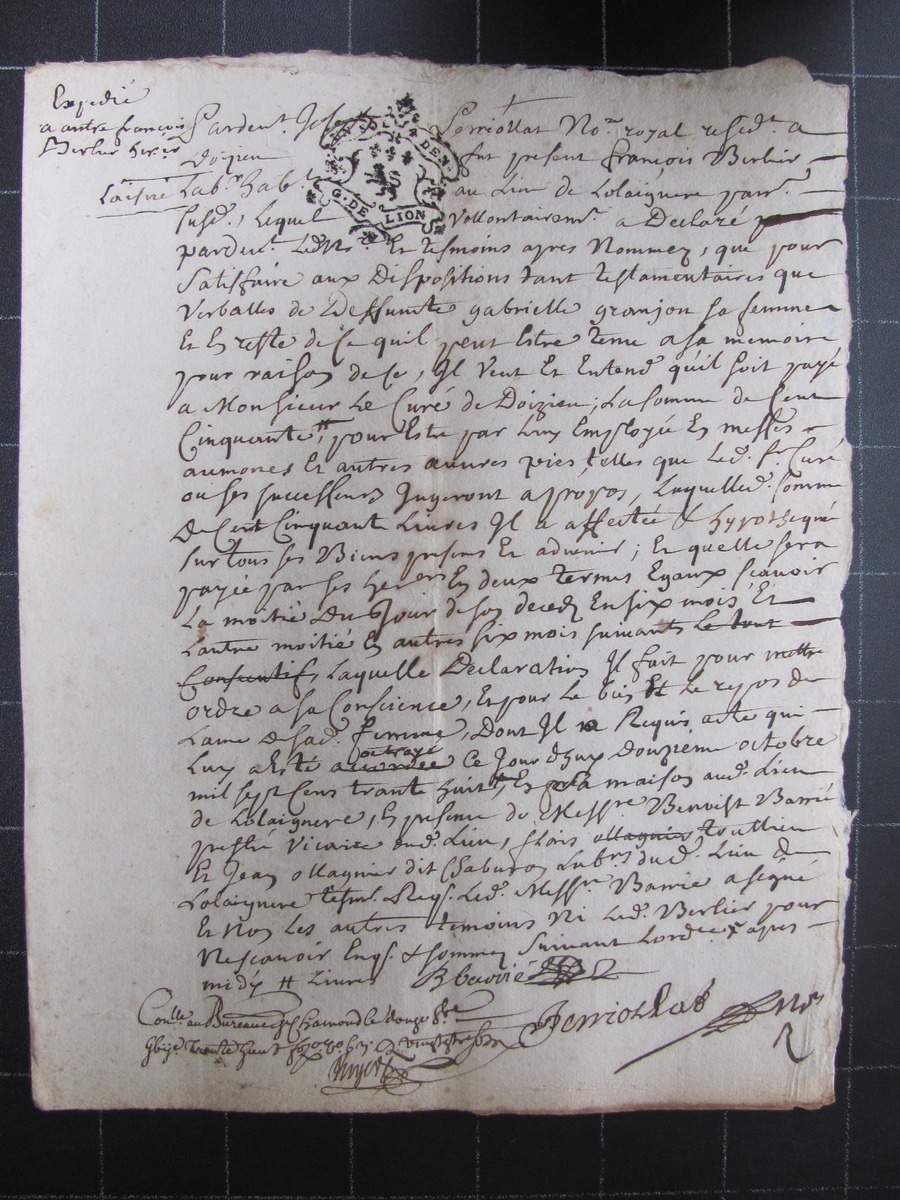 Expedié
a autre françois
Berlier her.er
Laisné
DEN.
G. DE LION
Pardev.t Perriollat No.re royal resed.t a
Doizieu fut present françois Berlier
Lab.r hab.t au Lieu de Lolaignere parr.e
susd. Lequel Vollontairem.t a Declaré
pardev.t Led. No.re Et tesmoins apres Nommez, que pour
Satisfaire aux Dispositions tant testamentaires que
Verballes de Deffuncte gabrielle granjon sa femme
Et En reste de ce quil peut Estre tenu a sa memoire
pour raison de ce, Il Veut Et Entend qu'il soit payé
a Monsieur Le Curé de Doizieu, La somme de Cent
Cinquante ₶ pour Estre par Luy Employée En messes
aumones Et autres œuvres pies, telles que Led. Sr. Curé
ou ses successeurs Jugeront a propos, Laquelled. somme
De Cent Cinquante Livres Il a affectée & hypothequé
sur tous ses Biens presens Et advenir; Et quelle sera
payée par ses Her.ers En deux termes Egaux scavoir
La moitié Du Jour de son decedz En six mois Et
Lautre moitié En autres six mois suivants Le tout
Consecutifs, Laquelle Declaration Il fait pour mettre
ordre a sa Conscience, Et pour Le bien Et Le repos de
Lame De sad. femme, Dont Il a Requis acte qui
octroyé
Luy a Esté accordée Ce Jourdhuy Douzieme octobre
mil sept Cens trante huit, En sa maison aud. Lieu
de Lolaignere, En presence de Mess.re Benoist Barrié
prestre Vicaire aud. Lieu, flois ollagnier
Et Jean ollagnier dit Chaburon Lab.rs dud. Lieu de
Lolaignere tesm. Req. Led. Mess.re Barrie a signé
Et Non Les autres temoins Ni Led. Berlier pour
Ne scavoir Enq. & sommez Suivant Lordre apres
midy ₶ Livres BBarrié
Perriollat No.re
Con.lle au Bureau de St Chamond le
trente huit